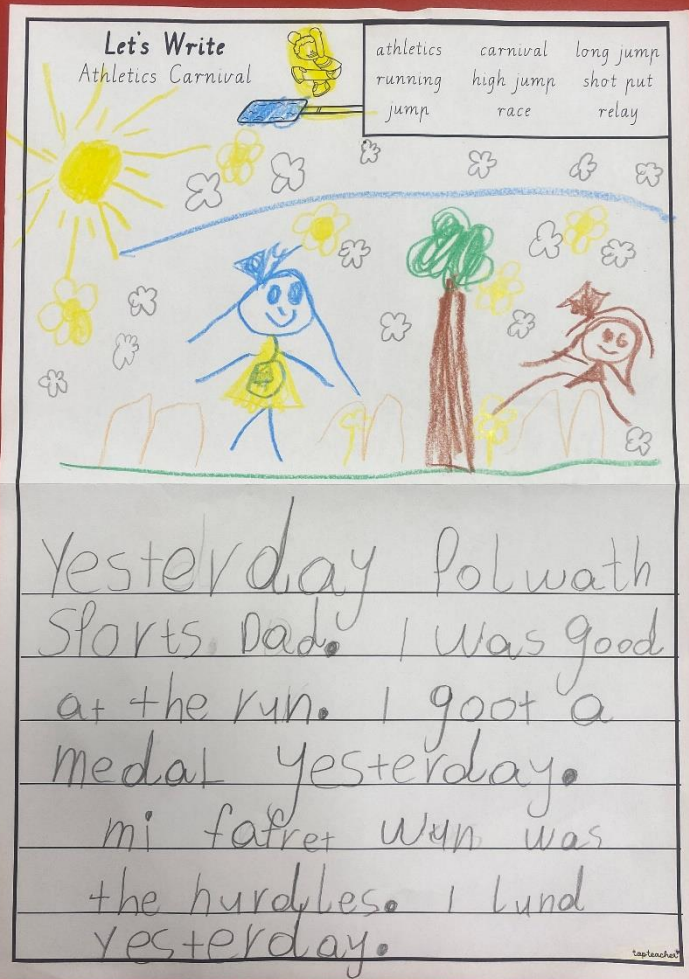 Let's Write
Athletics Carnival
athletics carnival long jump
running high jump shot put
jump race relay
Yesterday Polwath
Sports Dad. I was good
at the run. I goot a
medal yesterday.
mi fafret wun was
the hurdles. I lund
yesterday.
tapteacher